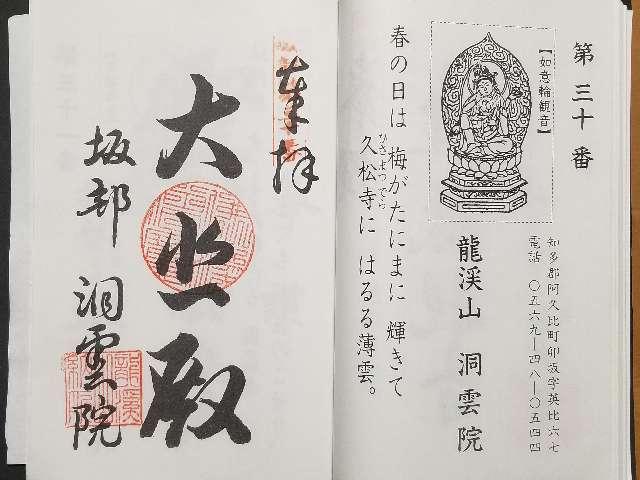 第三十番
【如意輪観音】
知多郡阿久比町卯坂字英比六七
電話 〇五六九―四八―〇五四四
龍渓山 洞雲院
春の日は 梅がたにまに 輝きて
ひさまつでら
久松寺に はるる薄雲。
奉拝
大悲殿
坂部 洞雲院